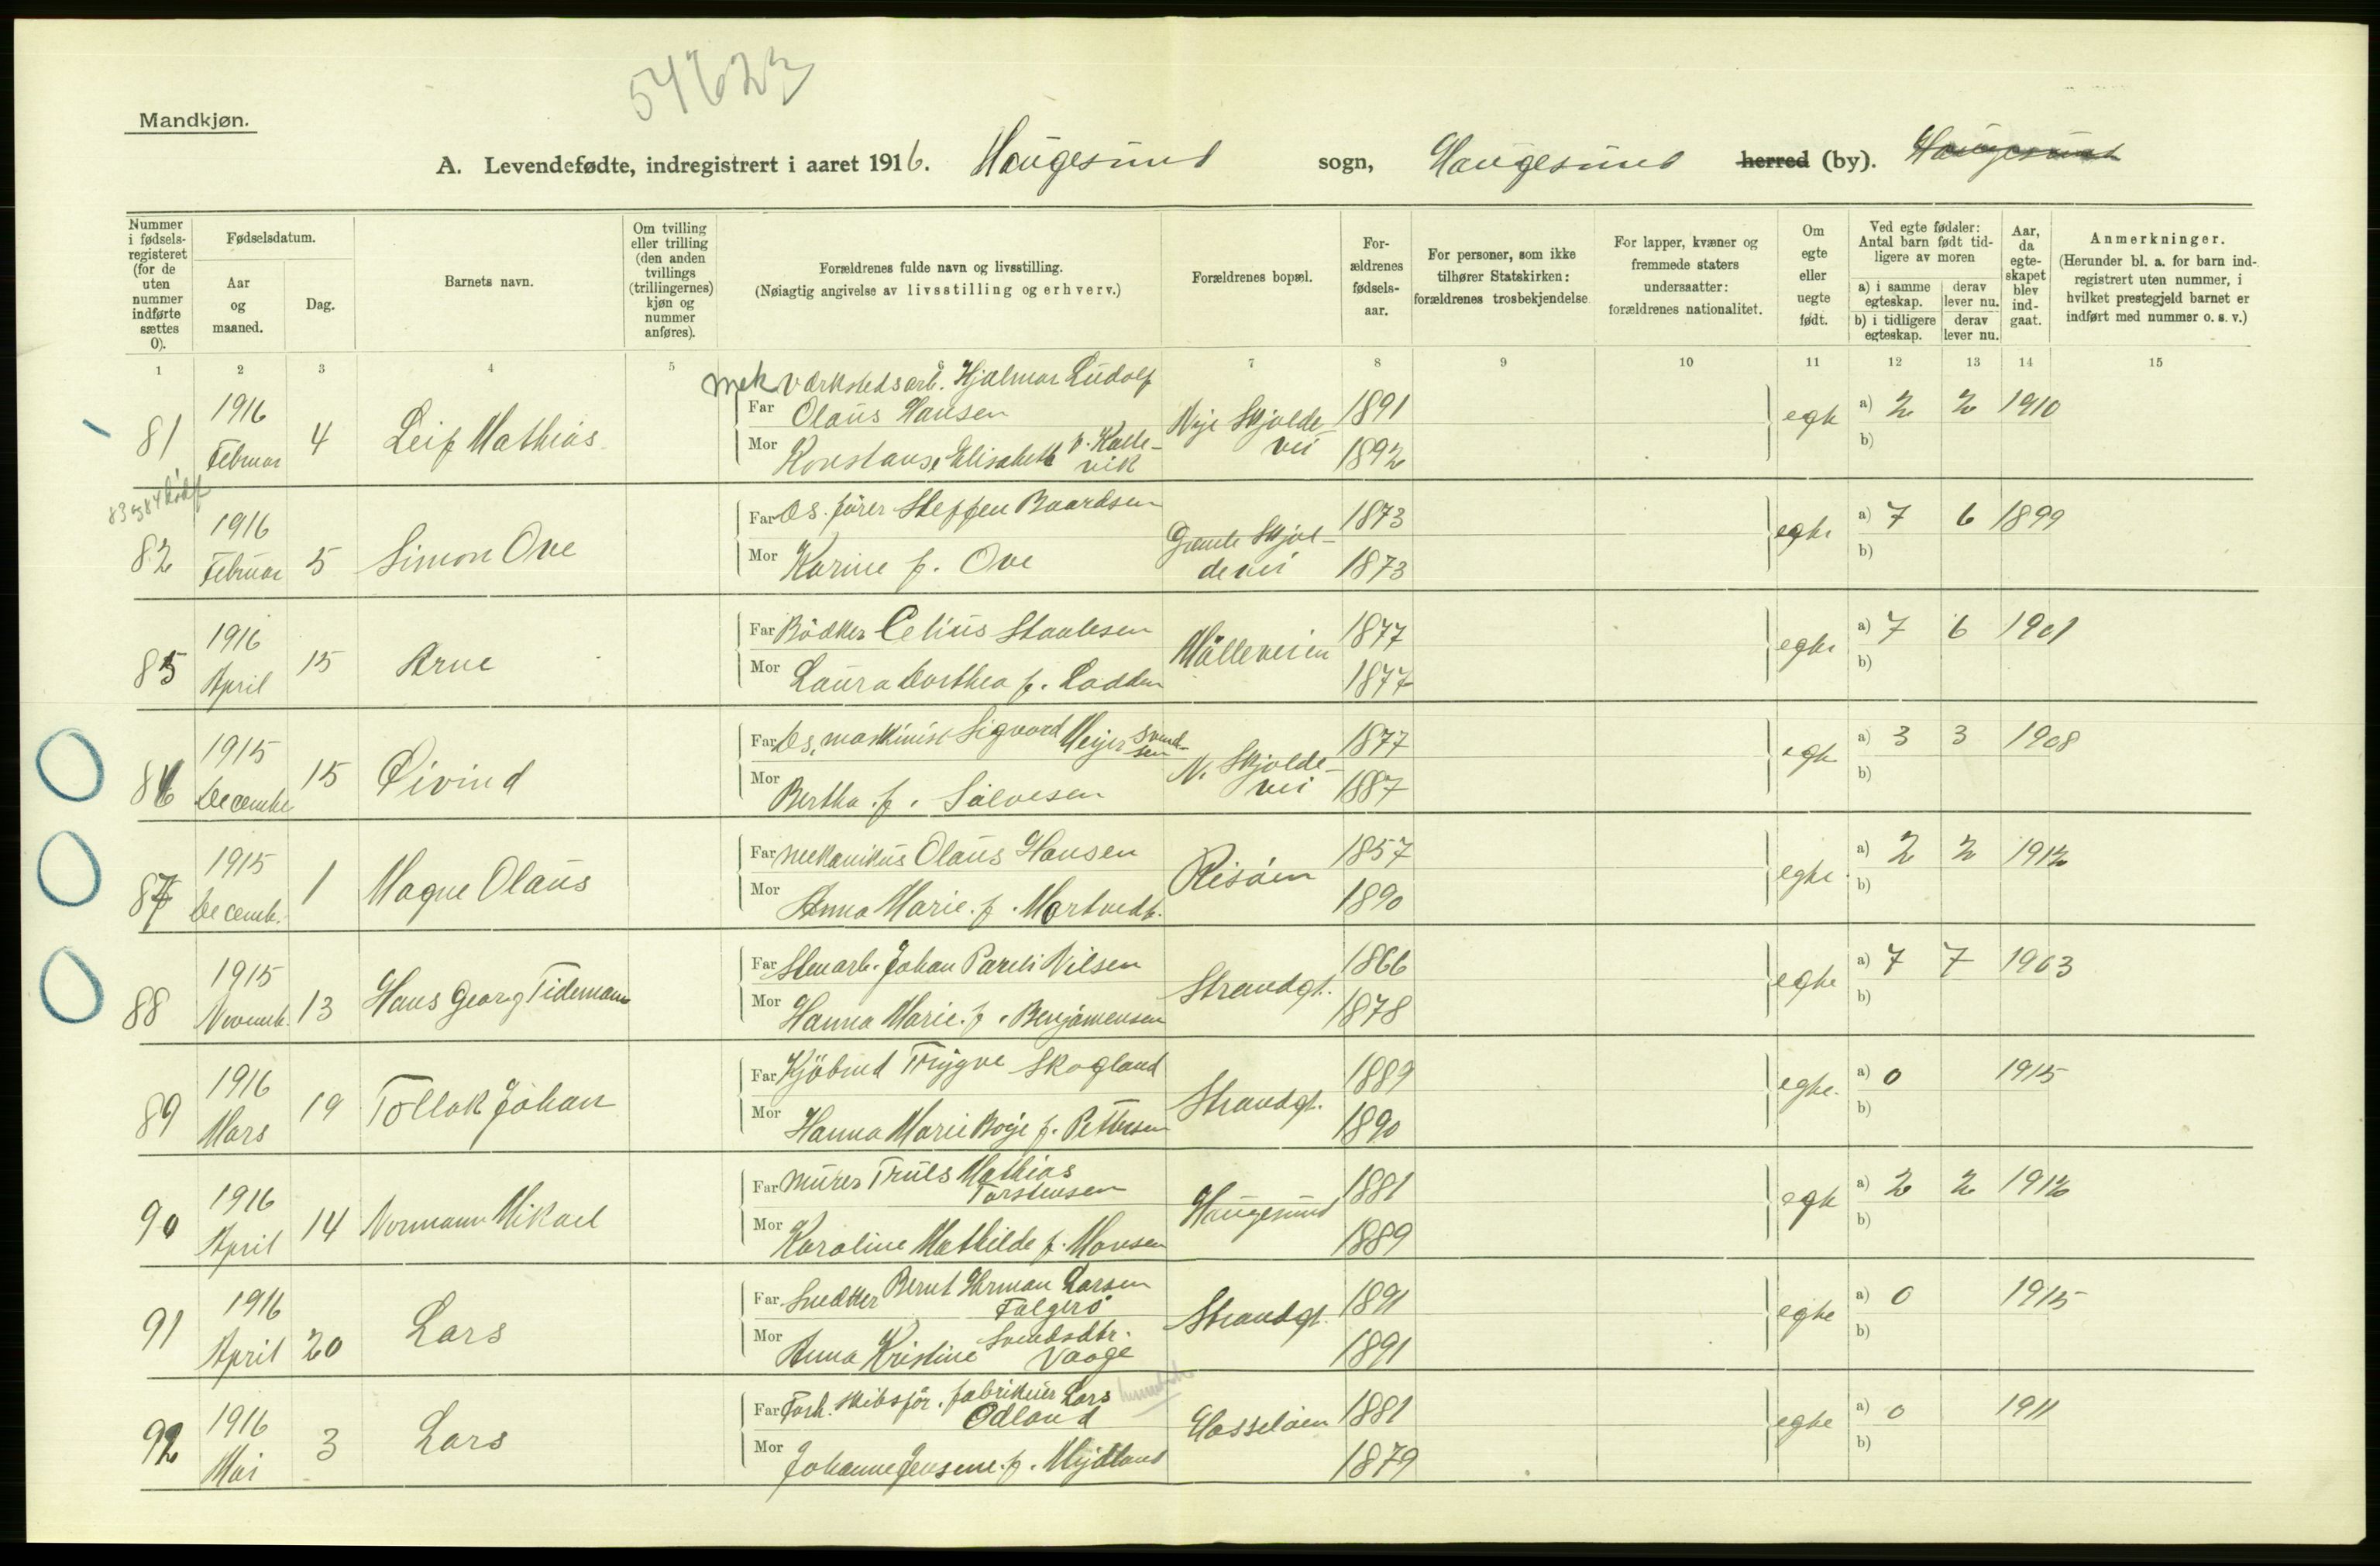 54623
Mandkjøn.
A. Levendefødte, indregistrert i aaret 1916. Haugesund sogn, Haugesund herred (by). Haugesund
Nummer i fødsels-registeret (for de uten nummer indførte sættes 0).
Fødselsdatum.
Aar og maaned.
Dag.
Barnets navn.
Om tvilling eller trilling (den anden tvillings (trillingernes) kjøn og nummer anføres).
Forældrenes fulde navn og livsstilling.
(Nøiagtig angivelse av livsstilling og erhverv.)
Forældrenes bopæl.
For-ældrenes fødsels-aar.
For personer, som ikke tilhører Statskirken: forældrenes trosbekjendelse
For lapper, kvæner og fremmede staters undersaatter: forældrenes nationalitet.
Om egte eller uegte født.
Ved egte fødsler: Antal barn født tid-ligere av moren
a) i samme egteskap.
derav lever nu.
b) i tidligere egteskap.
derav lever nu.
Aar, da egte-skapet blev ind-gaat.
Anmerkninger.
(Herunder bl. a. for barn ind-registrert uten nummer, i hvilket prestegjeld barnet er indført med nummer o. s. v.)
1 2 3 4 5 7 8 9 10 11 12 13 14 15
mek værkstedsarb. Hjalmar Ludolf
81 1916 Februar 4 Leif Mathias Far Olaus Hansen Nye Skjolde-vei 1891 egte a) 2 2 1910
Mor Konstanse Elisabeth f. Kalle-vik 1892 b)
83 og 84 dödf
82 1916 Februar 5 Simon Ove Far Ds. förer Steffen Baardsen Gamle Skjol-devei 1873 egte a) 7 6 1899
Mor Karine f. Ove 1873 b)
85 1916 April 15 Arne Far Bödker Celius Staalesen Mölleveien 1877 egte a) 7 6 1901
Mor Laura Dorthea f. Lodden 1877 b)
86 1915 Decembe 15 Øivind Far Ds. maskinist Sigvard Meyer Svend-sen N. Skjolde-vei 1877 egte a) 3 3 1908
Mor Bertha f. Salvesen 1887 b)
87 1915 Decemb. 1 Magne Olaus Far mekanikus Olaus Hansen Risöen 1857 egte a) 2 2 1912
Mor Anna Marie f. Mortvedt. 1890 b)
88 1915 Novemb. 13 Hans Georg Tidemann Far Stenarb. Johan Pareli Nilsen Strandgt. 1866 egte a) 7 7 1903
Mor Hanna Marie f. Benjamensen 1878 b)
89 1916 Mars 19 Tollak Johan Far Kjöbmd Trygve Skogland Strandgt. 1889 egte. a) 0 1915
Mor Hanna Marie Boye f. Pettersen 1890 b)
90 1916 April 14 Normann Mikael Far Murer Truls Mathias Torstensen Haugesund 1881 egte a) 2 2 1912
Mor Karoline Mathilde f. Monsen 1889 b)
91 1916 April 20 Lars Far Snedker Bernt Herman Larsen Folgerö Strandgt. 1891 egte a) 0 1915
Mor Anna Kristine Svendsdtr. Vaage 1891 b)
92 1916 Mai 3 Lars Far Forh. skibsför. fabrikeier Lars Odland Hasselöen 1881 egte a) 0 1911
Mor Johanne Jensine f. Mydland 1879 b)